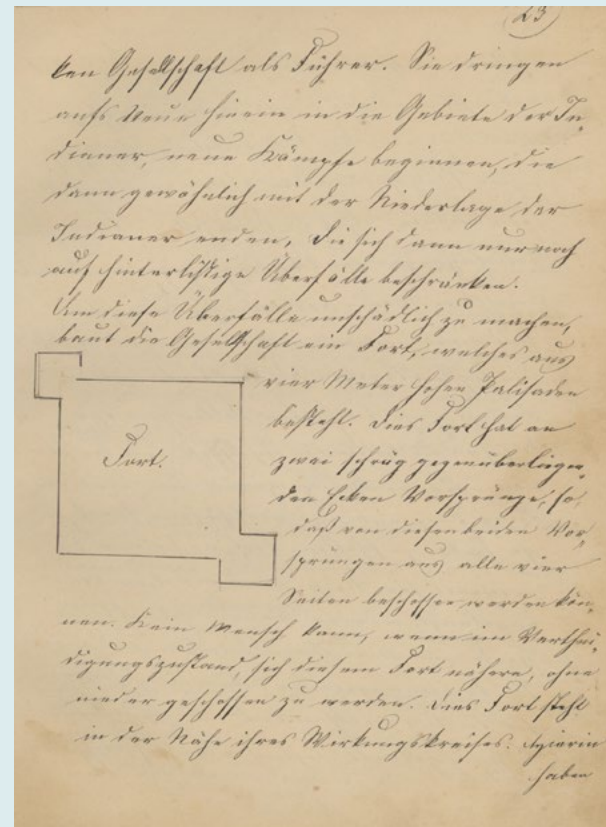 23
ken Gesellschaft als Führer. Sie dringen
aufs Neue hinein in die Gebiete der In-
dianer, neue Kämpfe beginnen, die
dann gewöhnlich mit der Niederlage der
Indianer enden, die sich dann nur noch
auf hinterlistige Überfälle beschränken.
Um diese Überfälle unschädlich zu machen,
baut die Gesellschaft ein Fort, welches aus
vier Meter hohen Palisaden
besteht. Dies Fort hat an
zwei schräg gegenüberliegen-
den Ecken Vorsprünge, so,
daß von diesen beiden Vor-
sprüngen aus alle vier
Seiten beschossen werden kön-
nen. Kein Mensch kann, wenn im Verthei-
digungszustand, sich diesem Fort nähern, ohne
nieder geschossen zu werden. Dies Fort steht
in der Nähe ihres Wirkungskreises. Hierin
haben
Fort.